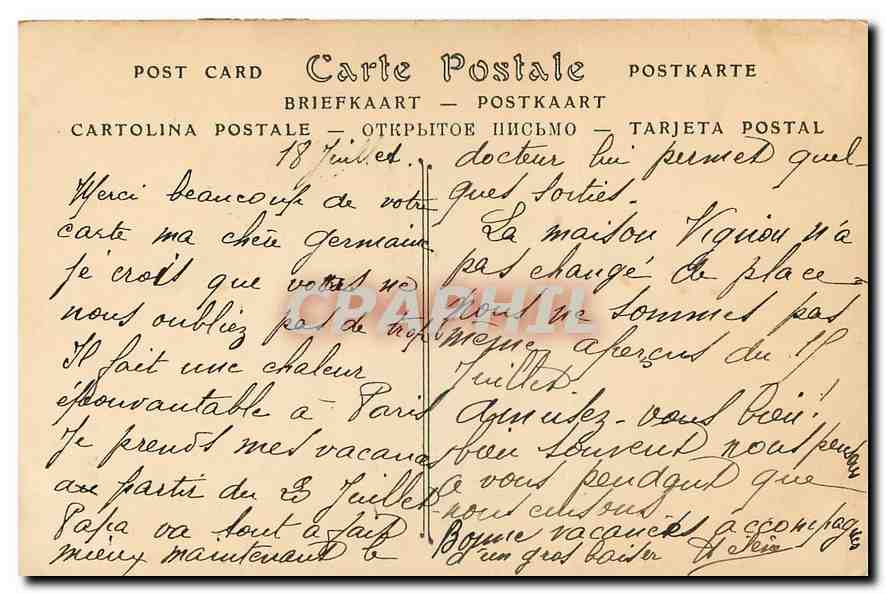 POST CARD Carte Postale POSTKARTE
BRIEFKAART — POSTKAART
CARTOLINA POSTALE — ОТКРЫТОЕ ПИСЬМО — TARJETA POSTAL
18 Juillet.
Merci beaucoup de votre
carte ma chère Germaine
je crois que vous ne
nous oubliez pas de trop
Il fait une chaleur
épouvantable à Paris
Je prends mes vacances
au partir du Juillet
Papa va tout à fait
mieux maintenant le
docteur lui permet quel-
ques sorties.
La maison Vignon n'a
pas changé de place
nous ne sommes pas
même aperçus du 15
Juillet
amusez-vous bien!
bien souvent nous pensons
à vous pendant que
nous cuisons
Bonne vacances accompagnées
d'un gros baiser
CPAPHIL